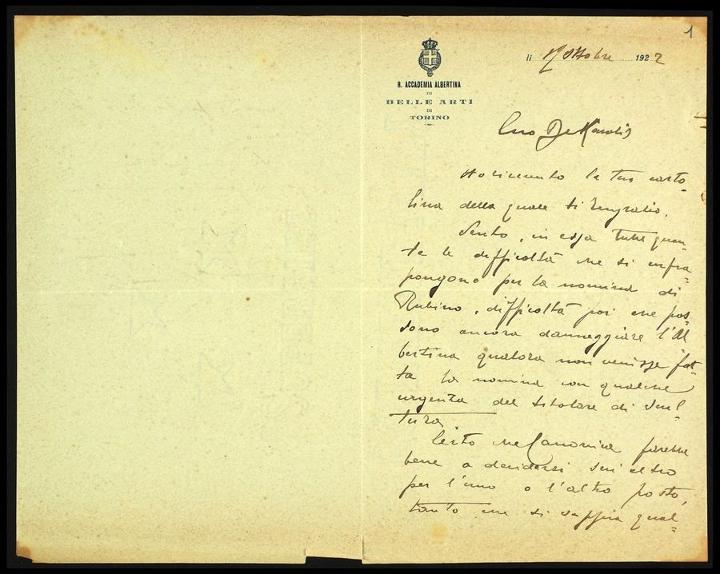 1
lì 17 Ottobre 1922
R. ACCADEMIA ALBERTINA
DI
BELLE ARTI
DI
TORINO
Caro De Karolis
Ho ricevuto la tua carto-
lina della quale ti ringrazio.
Sento, in essa tutte quan-
te le difficoltà che si infra-
pongono per la nomina di
Rubino, difficoltà poi che pos-
sono ancora danneggiare l'Al
bertina qualora non venisse fat-
ta la nomina con qualche
urgenza del titolare di Scul-
tura.
Certo che Canonica farebbe
bene a decidersi
per l'uno o l'altro posto,
tanto che si sappia qual-